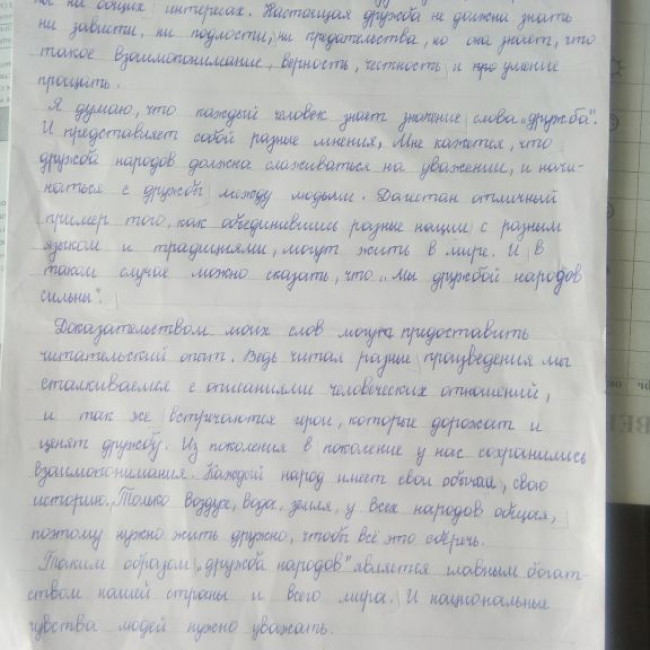 на общих интересах. Настоящая дружба не должна знать
ни зависти, ни подлости, ни предательства, но она знает, что
такое взаимопонимание, верность, честность и про умение
прощать.
Я думаю, что каждый человек знает значение слова „дружба".
И представляет собой разные мнения. Мне кажется, что
дружбой народов должна слаживаться на уважении, и начи-
наться с дружбы между людьми. Дагистан отличный
пример того, как объединившись разные нации с разным
языком и традициями, могут жить в мире. И в
таком случае можно сказать, что „Мы дружбой народов
сильны".
Доказательством моих слов могут предоставить
читательский опыт. Ведь читая разные произведения мы
сталкиваемся с описаниями человеческих отношений,
и так же встречаются герои, которые дорожат и
ценят дружбу. Из поколения в поколение у нас сохранились
взаимопонимания. Каждый народ имеет свои обычаи, свою
историю. Только воздух, вода, земля, у всех народов общая,
поэтому нужно жить дружно, чтобы всё это сберечь.
Таким образом „дружба народов" является главным богат-
ством нашей страны и всего мира. И национальные
чувства людей нужно уважать.